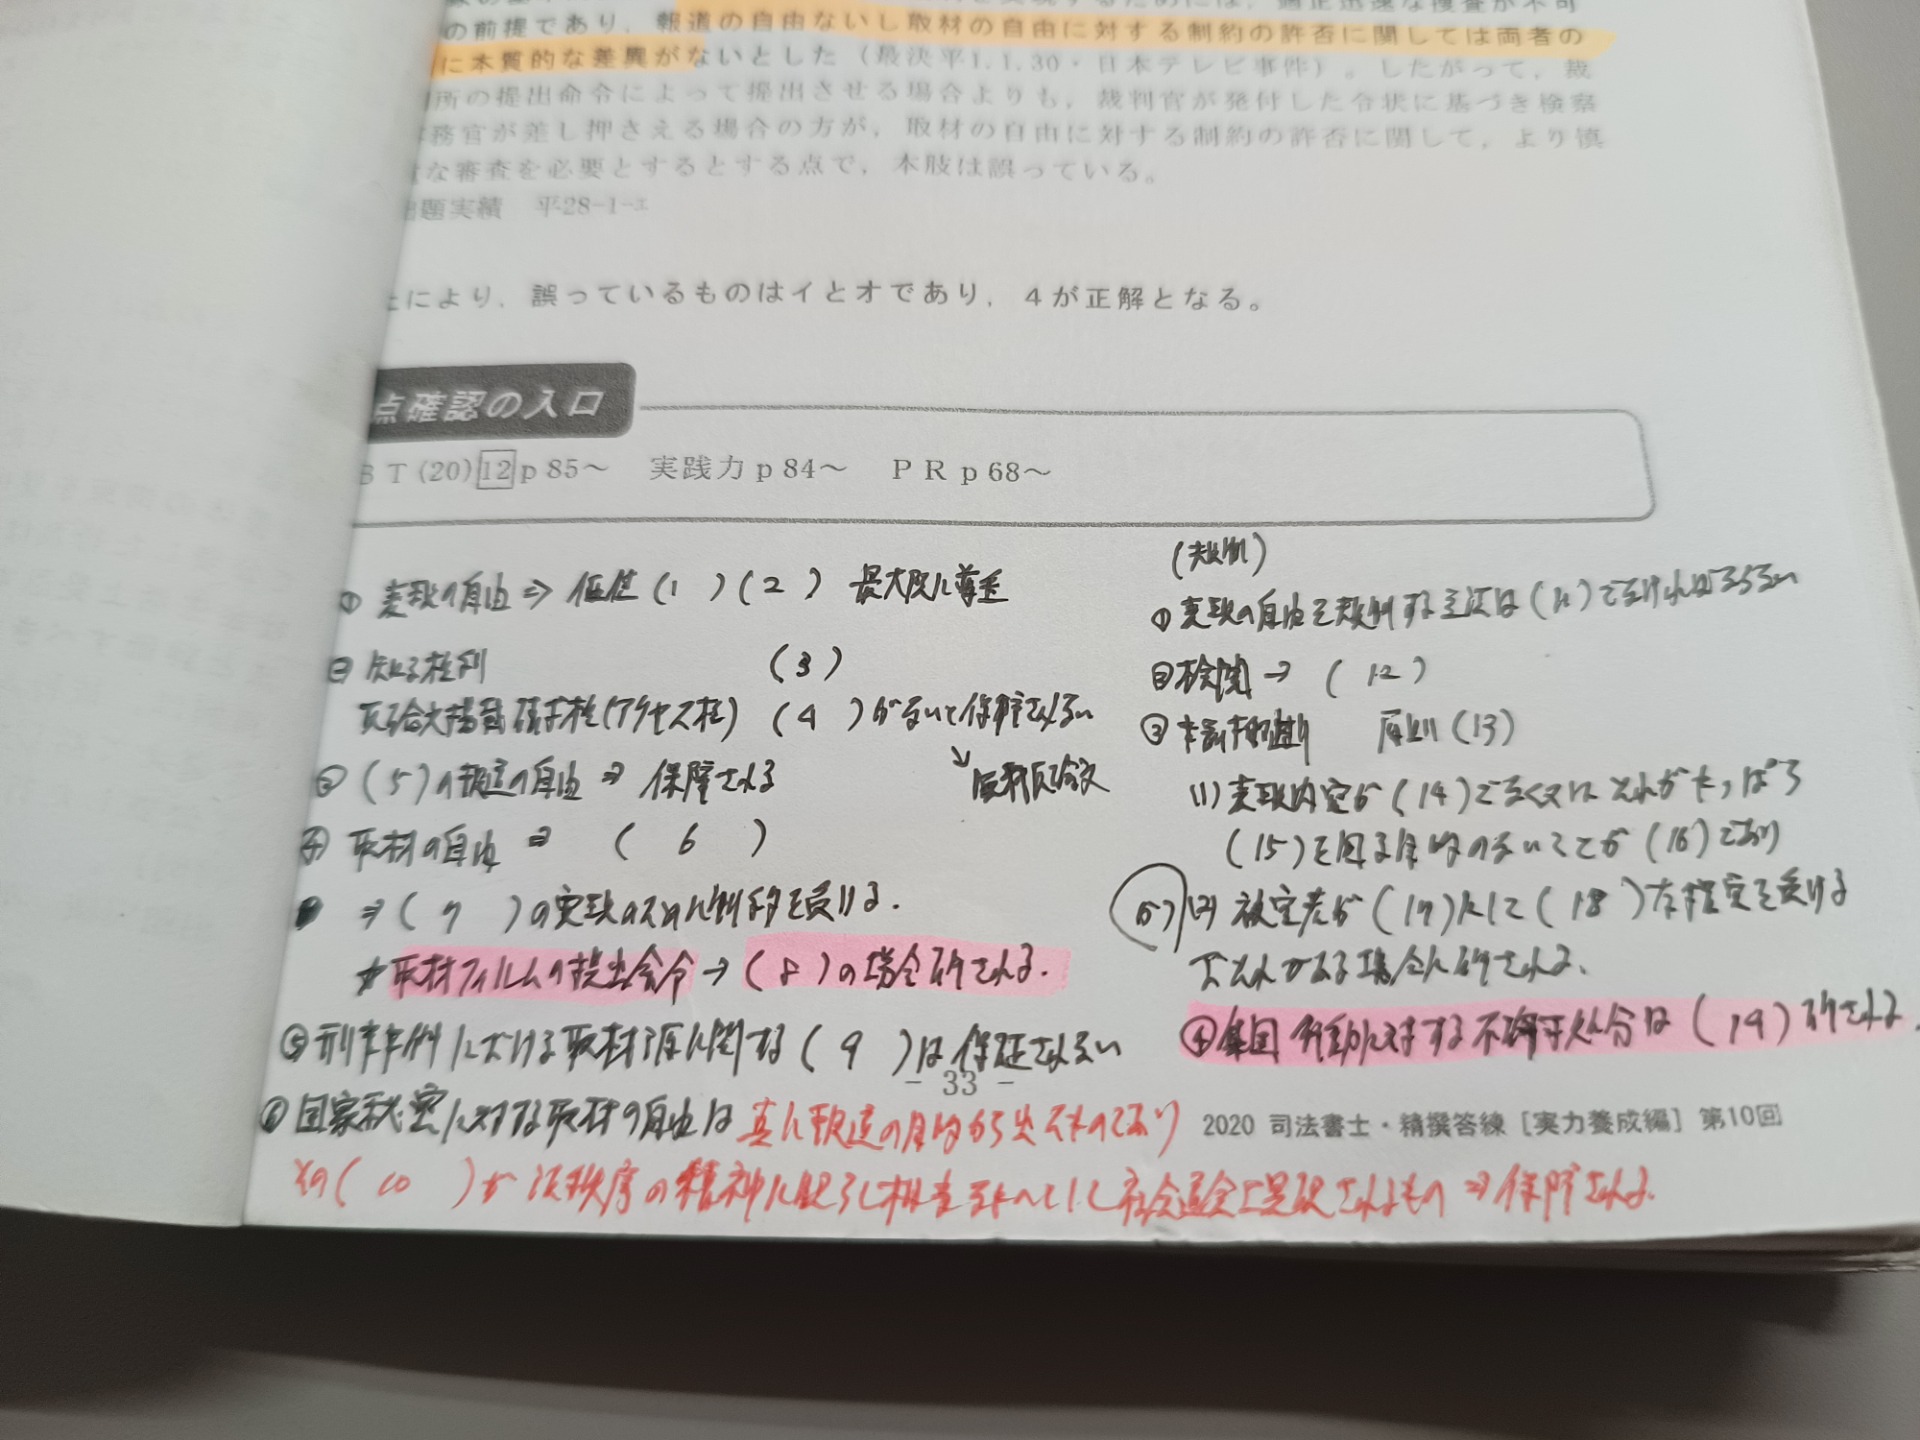 の前提であり，報道の自由ないし取材の自由に対する制約の許否に関しては両者の
に本質的な差異がないとした（最決平1.1.30・日本テレビ事件）。したがって，裁
所の提出命令によって提出させる場合よりも，裁判官が発付した令状に基づき検察
務官が差し押さえる場合の方が，取材の自由に対する制約の許否に関して，より慎
な審査を必要とするとする点で，本肢は誤っている。
出題実績 平28-1-エ
により，誤っているものはイとオであり，4が正解となる。
点確認の入口
BT(20)12p85～ 実践力p84～ PRp68～
① 表現の自由⇒ (1)(2) 最大限に尊重
② 知る権利 (3)
(アクセス権) (4)がないと保障されない
↘反論文
③ (5)の報道の自由⇒保障される
④ 取材の自由⇒(6)
⇒(7)の実現のために制約を受ける.
取材フィルムの提出命令→(8)の場合許される.
⑤ 刑事事件における取材源に関する(9)は保証されない
⑥ 国家秘密に対する取材の自由は 真に報道の目的から出たものであり
その(10)が法秩序の精神に照らし相当 社会通念上是認されるもの⇒保障される.
(規制)
① 表現の自由を規制する立法は(11)でなければならない
② 検閲→(12)
③ 事前 原則(13)
(1) 表現内容が(14)でなく又はそれがもっぱら
(15)を図る目的のないことが(16)であり
かつ (2) 被害者が(17)にして(18)な損害を受ける
おそれがある場合に許される.
④ 集団行動に対する不許可処分は(19)許される.
- 33 -
2020 司法書士・精撰答練［実力養成編］第10回